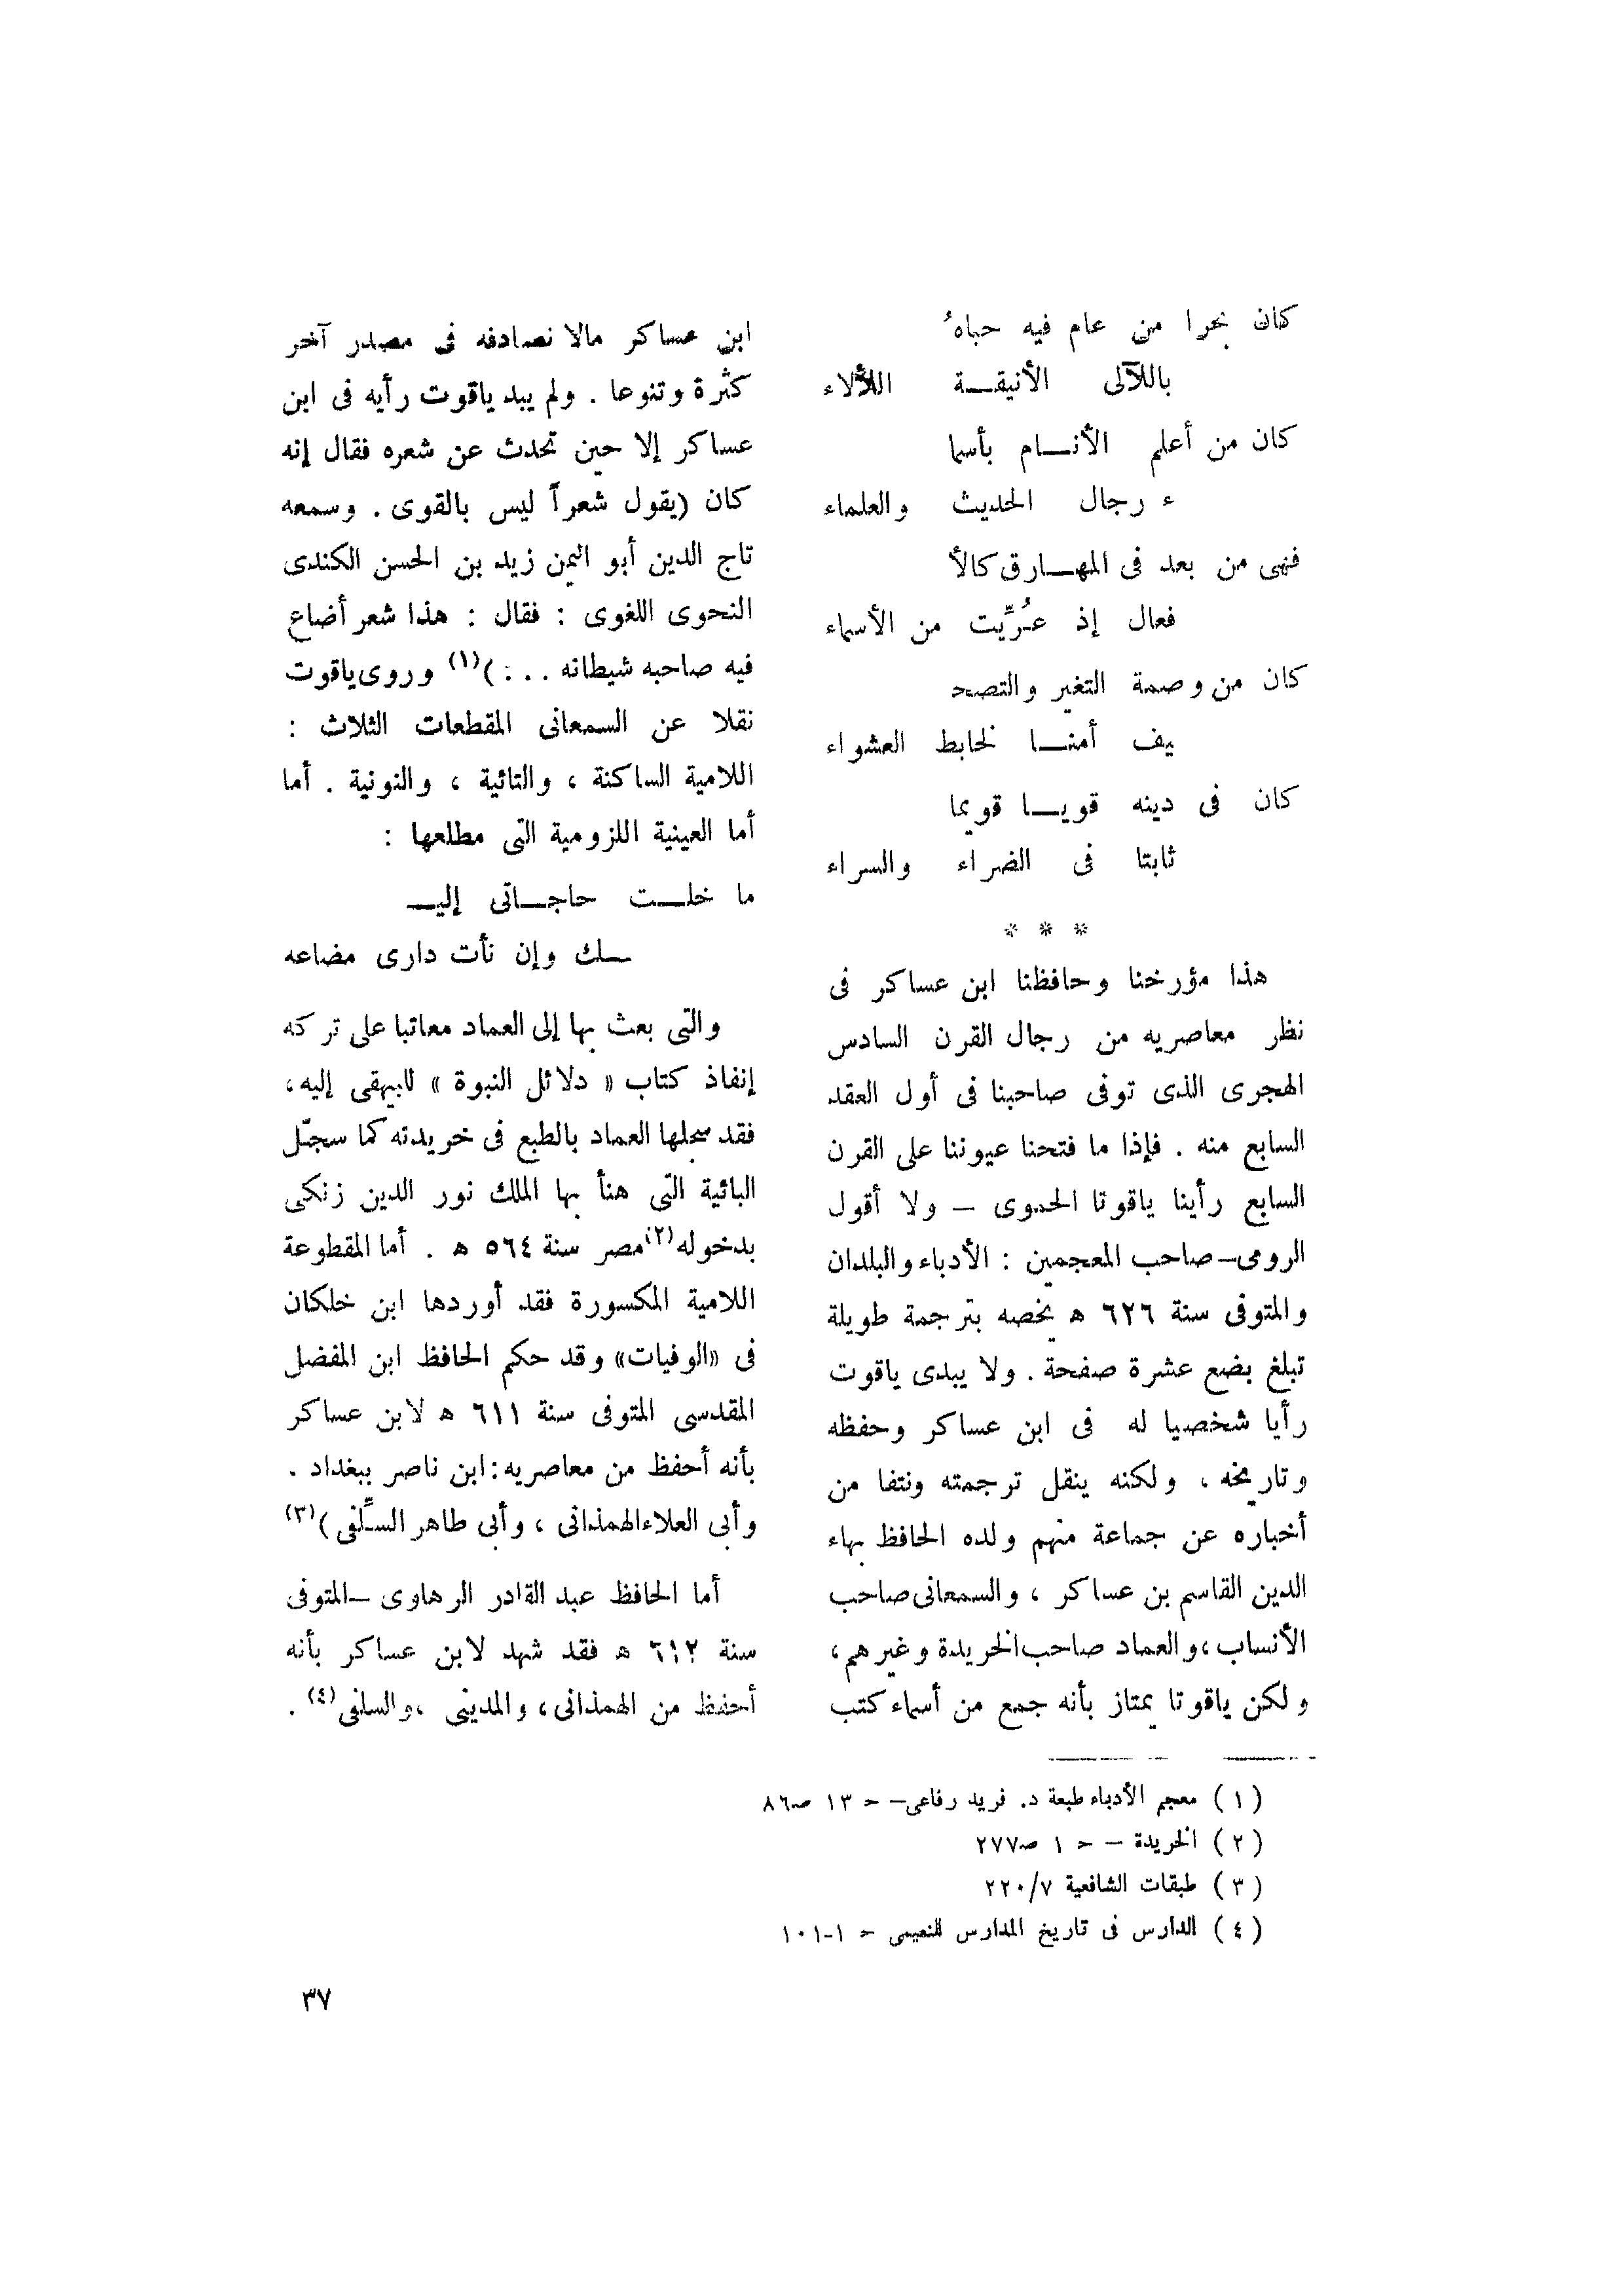 كان بحرا من عام فيه حباهُ
باللآلى الأنيقــة اللألاء
كان من أعلم الأنــام بأسما
ء رجال الحديث والعلماء
فهى من بعد فى المهــارق كالأ
فعال إذ عُرِّيت من الأسماء
كان من وصمة التغير والتصحـ
يف أمنــا لخابط العشواء
كان فى دينه قويــا قويما
ثابتا فى الضراء والسراء
* * *
هذا مؤرخنا وحافظنا ابن عساكر فى
نظر معاصريه من رجال القرن السادس
الهجرى الذى توفى صاحبنا فى أول العقد
السابع منه . فإذا ما فتحنا عيوننا على القرن
السابع رأينا ياقوتا الحموى – ولا أقول
الرومى – صاحب المعجمين : الأدباء والبلدان
والمتوفى سنة ٦٢٦ ه يخصه بترجمة طويلة
تبلغ بضع عشرة صفحة . ولا يبدى ياقوت
رأيا شخصيا له فى ابن عساكر وحفظه
وتاريخه ، ولكنه ينقل ترجمته ونتفا من
أخباره عن جماعة منهم ولده الحافظ بهاء
الدين القاسم بن عساكر ، والسمعانى صاحب
الأنساب ، والعماد صاحب الخريدة وغيرهم ،
ولكن ياقوتا يمتاز بأنه جمع من أسماء كتب
ابن عساكر مالا نصادفه فى مصدر آخر
كثرة وتنوعا . ولم يبد ياقوت رأيه فى ابن
عساكر إلا حين تحدث عن شعره فقال إنه
كان (يقول شعراً ليس بالقوى . وسمعه
تاج الدين أبو اليمن زيد بن الحسن الكندى
النحوى اللغوى : فقال : هذا شعر أضاع
فيه صاحبه شيطانه . . . : )(١) وروى ياقوت
نقلا عن السمعانى المقطعات الثلاث :
اللامية الساكنة ، والتائية ، والنونية . أما
أما العينية اللزومية التى مطلعها :
ما خلــت حاجــاتى إليــ
ــك وإن نأت دارى مضاعه
والتى بعث بها إلى العماد معاتبا على تركه
إنفاذ كتاب « دلائل النبوة » للبيهقى إليه ،
فقد سجلها العماد بالطبع فى خريدته كما سجّل
البائية التى هنأ بها الملك نور الدين زنكى
بدخوله(٢) مصر سنة ٥٦٤ ه . أما المقطوعة
اللامية المكسورة فقد أوردها ابن خلكان
فى «الوفيات» وقد حكم الحافظ ابن المفضل
المقدسى المتوفى سنة ٦١١ ه لابن عساكر
بأنه أحفظ من معاصريه : ابن ناصر ببغداد .
وأبى العلاء الهمذانى ، وأبى طاهر السِّلفى )(٣)
أما الحافظ عبد القادر الرهاوى – المتوفى
سنة ٦١٢ ه فقد شهد لابن عساكر بأنه
أحفظ من الهمذانى ، والمدينى ، والسلفى(٤) .
(١) معجم الأدباء طبعة د. فريد رفاعى – ح ١٣ ص٨٦
(٢) الخريدة – ح ١ ص٢٧٧
(٣) طبقات الشافعية ٢٢٠/٧
(٤) الدارس فى تاريخ المدارس للنعيمى ح ١-١٠١
٣٧